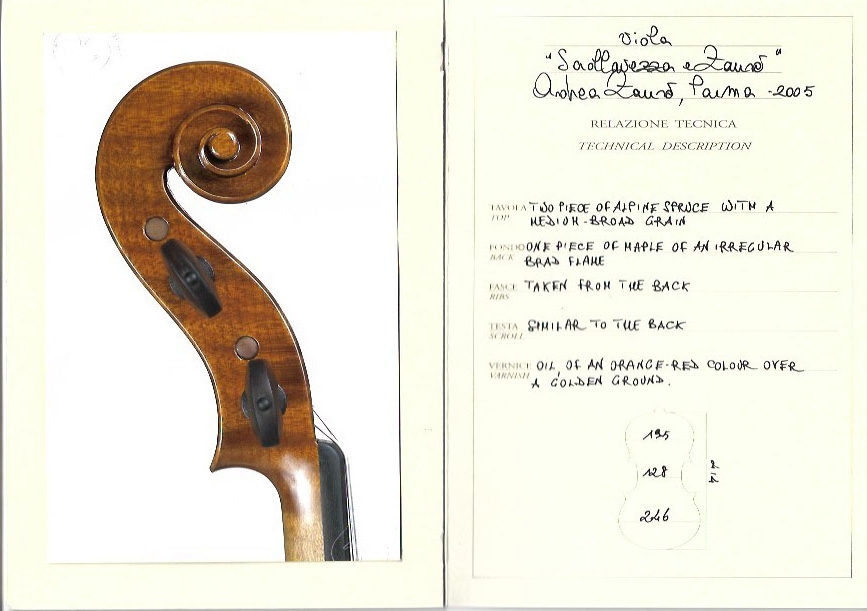 Viola
"Scrollavezza e Zanrè"
Andrea Zanrè, Parma - 2005
RELAZIONE TECNICA
TECHNICAL DESCRIPTION
TAVOLA TWO PIECE OF ALPINE SPRUCE WITH A
TOP MEDIUM-BROAD GRAIN
FONDO ONE PIECE OF MAPLE OF AN IRREGULAR
BACK BRAD FLAME
FASCE TAKEN FROM THE BACK
RIBS
TESTA SIMILAR TO THE BACK
SCROLL
VERNICE OIL, OF AN ORANGE-RED COLOUR OVER
VARNISH A GOLDEN GROUND.
195
128
246